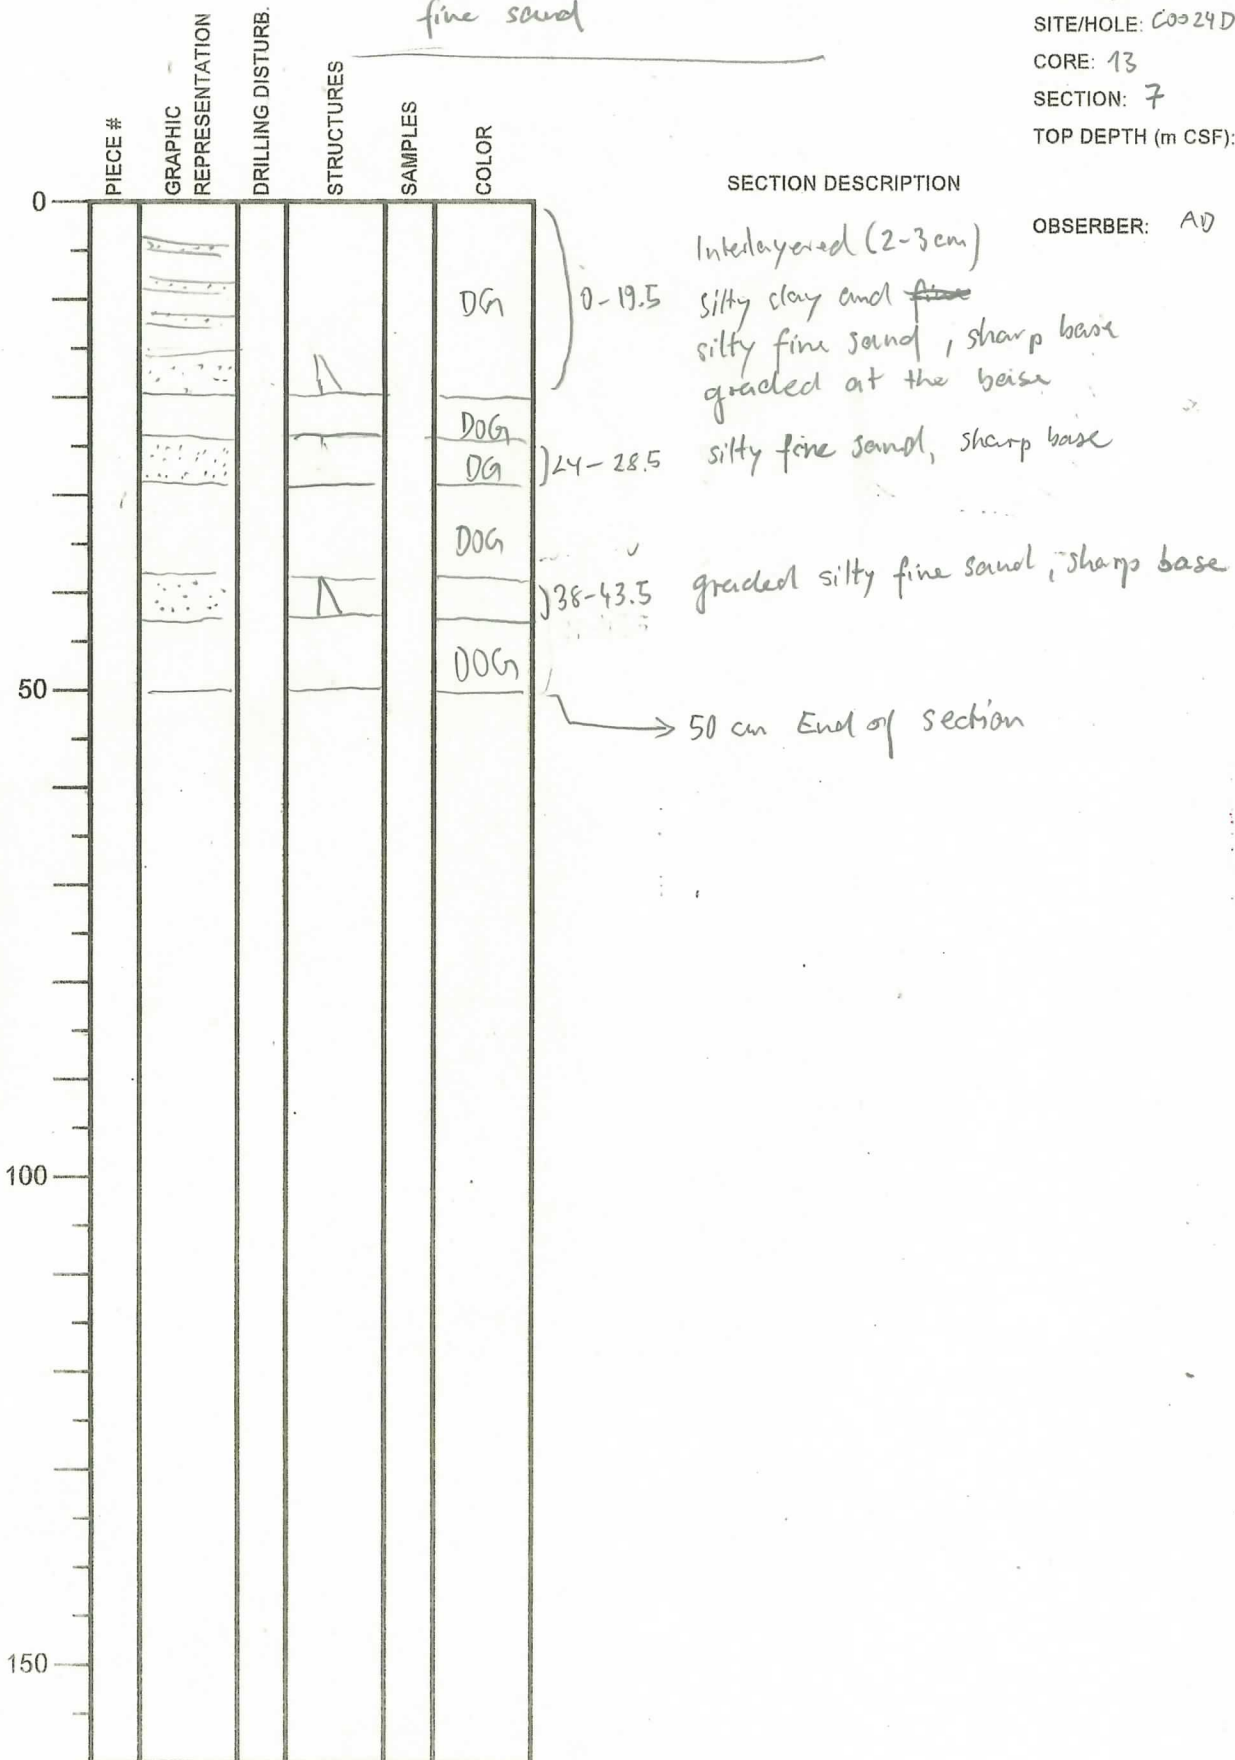 fine sand
SITE/HOLE: C0024D
CORE: 13
SECTION: 7
TOP DEPTH (m CSF):
PIECE #
GRAPHIC
REPRESENTATION
DRILLING DISTURB.
STRUCTURES
SAMPLES
COLOR
SECTION DESCRIPTION
OBSERBER: AD
0
DG
0-19.5
Interlayered (2-3 cm)
silty clay and fine
silty fine sand, sharp base
graded at the base
DOG
DG
24-28.5 silty fine sand, sharp base
DOG
38-43.5 graded silty fine sand, sharp base
DOG
50
50 cm End of section
100
150